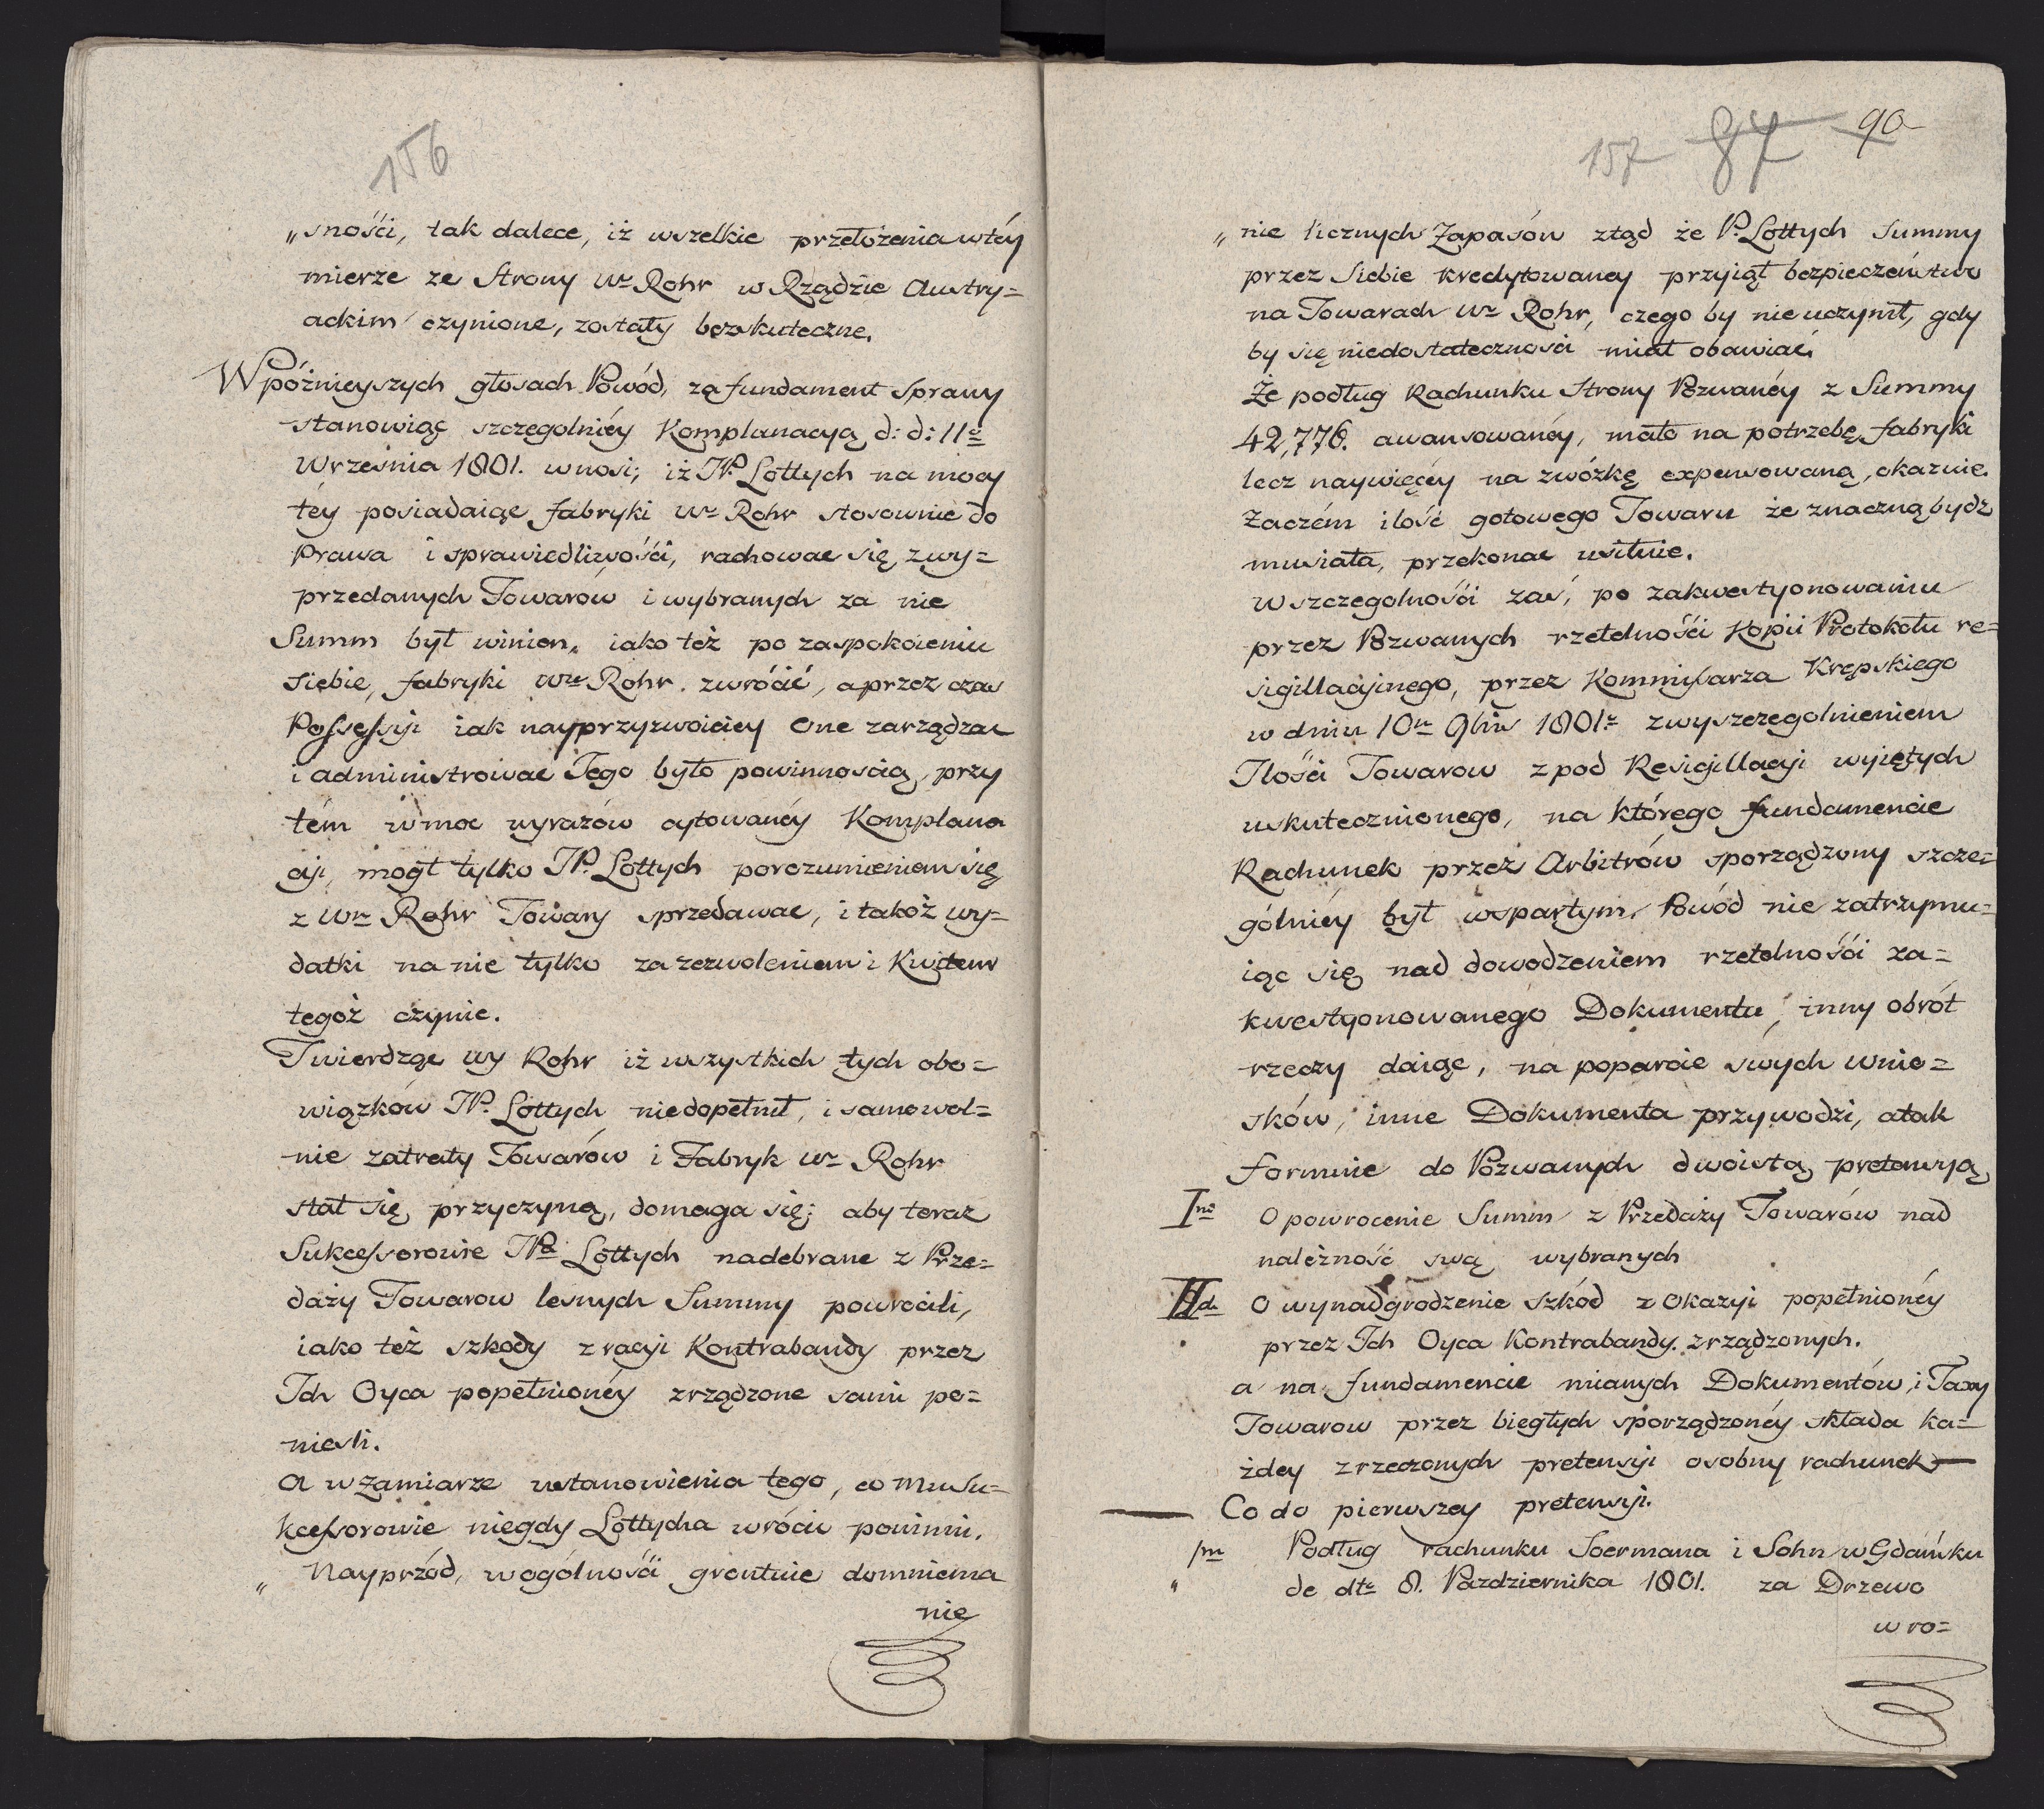 156
„sności, tak dalece, iż wszelkie przełożenia w téy
mierze ze Strony Wº Rohr w Rządzie Austry=
ackim czynione, zostały bezskuteczne.
W późnieyszych głosach Powód, za fundament Sprawy
stanowiąc szczegolniéy Komplanacyą d: d: 11º
Września 1801. wnosi; iż JP. Lottych na mocy
téy posiadaiąc fabryki Wº Rohr stosownie do
Prawa i sprawiedliwości, rachować się z wy=
przedanych Towarów i wybranych za nie
Summ był winien, iako też po zaspokoieniu
siebie, fabryki Wº Rohr zwrócić, a przez czas
Possessyi iak nayprzyzwoiciey One zarządzać
i administrować Jego było powinnoscią, przy
tém w moc wyrazów cytowanéy Komplana
cyi, mogł tylko JP. Lottych porozumieniem się
z Wm Rohr Towary sprzedawać, i takoż wy=
datki na nie tylko za zezwoleniem i Kwitem
tegoż czynić.
Twierdząc Wy Rohr iż wszystkich tych obo=
wiązków JP. Lottych niedopełnił, i samowol=
nie zatraty Towarów i Fabryk Wº Rohr
stał się przyczyną, domaga się; aby teraz
Sukcessorowie JPa Lottych nadebrane z Prze=
daży Towarow lesnych Summy powrócili,
iako też szkody z racyi Kontrabandy przez
Ich Oyca popełnionéy zrządzone sami po=
niesli.
A w zamiarze ustanowienia tego, co mu Su=
kcessorowie niegdy Lottycha wrócić powinni.
„ Nayprzód, w ogólności grontnie domniema
nie
157 87 90
„ nie licznych Zapasów ztąd że P. Lottych Summy
przez Siebie kredytowaney przyiął bezpieczeństwo
na Towarach Wº Rohr, czego by nie uczynił, gdy
by się niedostateczności miał obawiać.
Że podług Rachunku Strony Pozwanéy z Summy
42,776. awansowanéy, mało na potrzebę fabryki
lecz naywięcéy na zwózkę expensowaną, okazuie.
Zaczém ilość gotowego Towaru że znaczną bydź
musiała, przekonać usiłuie.
W szczegolności zaś, po zakwestyonowaniu
przez Pozwanych rzetelności Kopii Protokołu re=
sigillacyinego, przez Kommissarza Krępskiego
w dniu 10m 9bris 1801r z wyszczegolnieniem
Ilości Towarow z pod Resigillacyi wyiętych
uskutecznionego, na którego fundamencie
Rachunek przez Arbitrów sporządzony szcze=
gólniéy był wspartym, Powód nie zatrzymu=
iąc się nad dowodzeniem rzetelności za=
kwestyonowanego Dokumentu, inny obrót
rzeczy daiąc, na poparcie swych wnio=
sków, inne Dokumenta przywodzi, a tak
formuie do Pozwanych dwoistą pretensyą
Imo O powrocenie Summ z Przedaży Towarów nad
należność swą wybranych
IIdo O wynadgrodzenie Szkód z Okazyi popełnionéy
przez Ich Oyca Kontrabandy zrządzonych.
a na fundamencie mianych Dokumentów, i Taxy
Towarow przez biegłych sporządzonéy składa ka=
żdey z rzeczonych pretensyi osobny rachunek
Co do pierwszey pretensyi.
1m Podług rachunku Soermana i Sohn w Gdańsku
„ de dto 8. Pazdziernika 1801. za Drzewo
w ro=